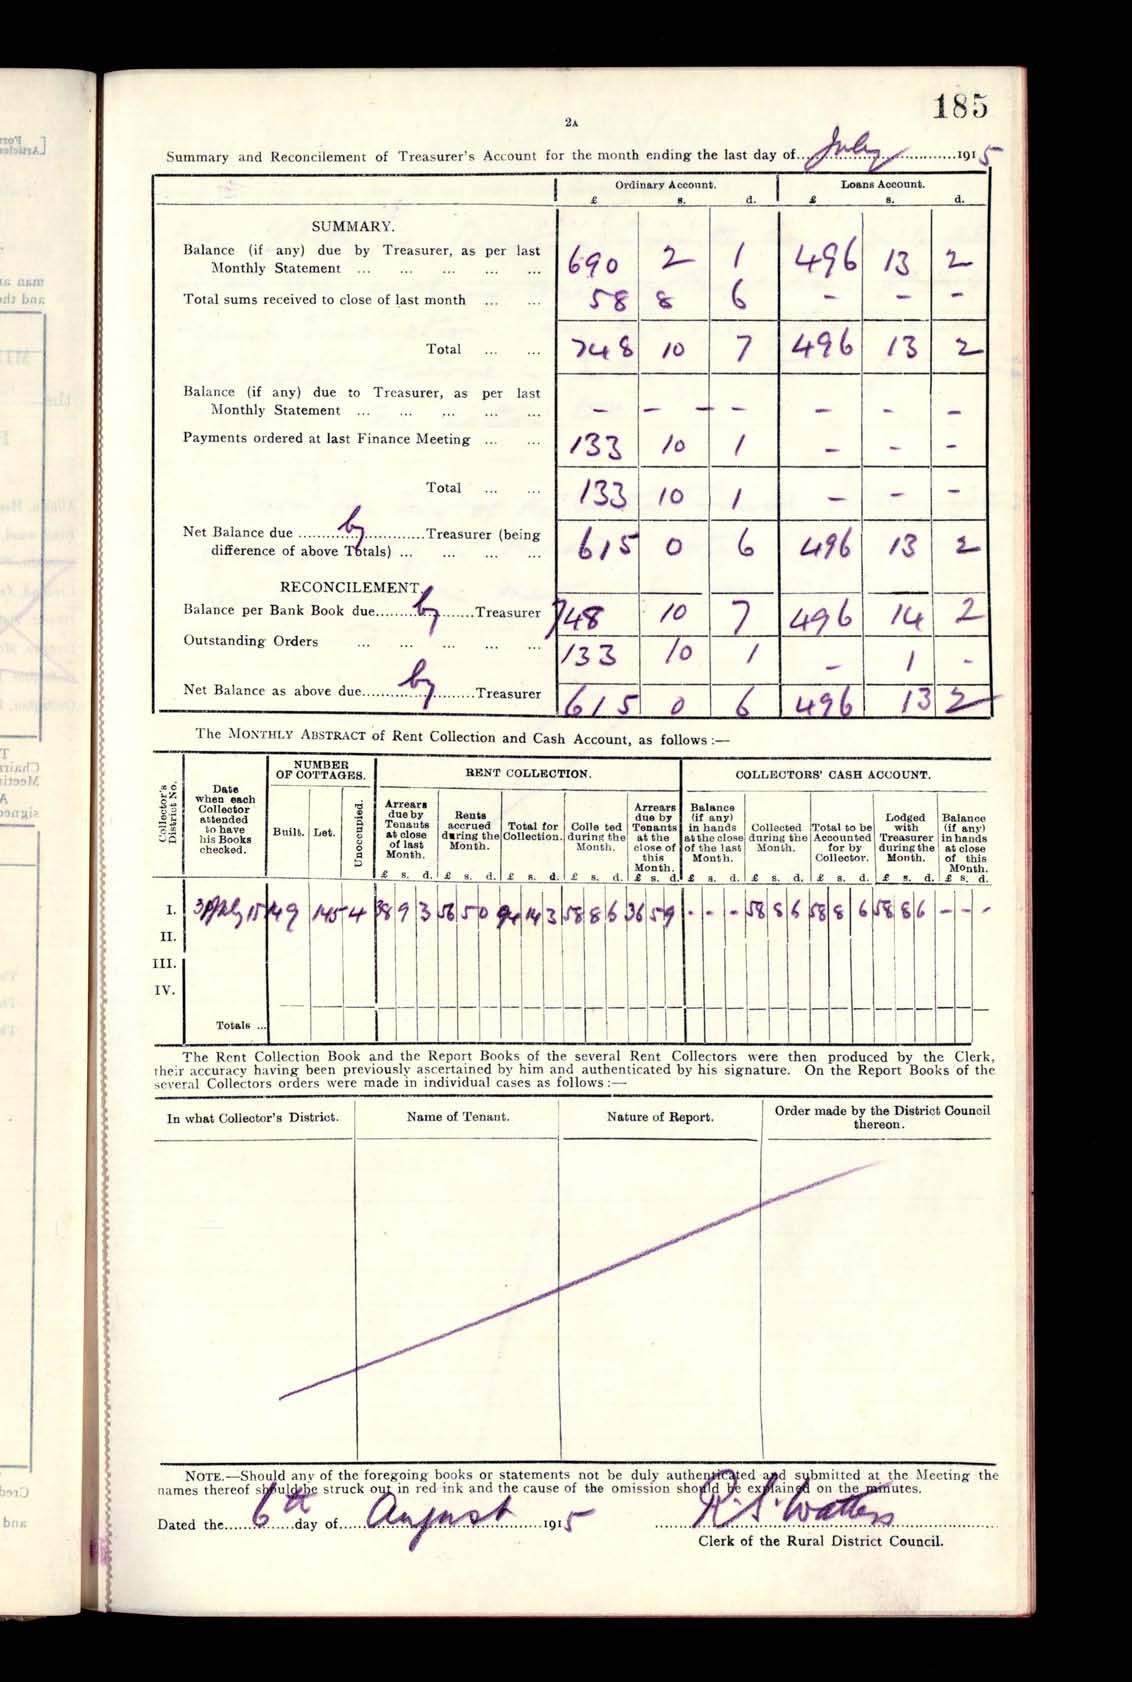 185
2A
Summary and Reconcilement of Treasurer's Account for the month ending the last day of July 1915
Ordinary Account. Loans Account.
£ s. d. £ s. d.
SUMMARY.
Balance (if any) due by Treasurer, as per last
Monthly Statement ... ... ... ... ... 690 2 1 496 13 2
Total sums received to close of last month ... ... 58 8 6 – – –
Total ... ... 748 10 7 496 13 2
Balance (if any) due to Treasurer, as per last
Monthly Statement ... ... ... ... ... – – – – – – –
Payments ordered at last Finance Meeting ... ... 133 10 1 – – –
Total ... ... 133 10 1 – – –
Net Balance due by Treasurer (being
difference of above Totals) ... ... ... ... 615 0 6 496 13 2
RECONCILEMENT.
Balance per Bank Book due by Treasurer 748 10 7 496 14 2
Outstanding Orders ... ... ... ... ... 133 10 1 – 1 -
Net Balance as above due by Treasurer 615 0 6 496 13 2
The MONTHLY ABSTRACT of Rent Collection and Cash Account, as follows :—
Collector's District No.
Date when each Collector attended to have his Books checked.
NUMBER OF COTTAGES.
Built. Let. Unoccupied.
RENT COLLECTION.
Arrears due by Tenants at close of last Month. £ s. d.
Rents accrued during the Month. £ s. d.
Total for Collection. £ s. d.
Colle ted during the Month. £ s. d.
Arrears due by Tenants at the close of this Month. £ s. d.
COLLECTORS' CASH ACCOUNT.
Balance (if any) in hands at the close of the last Month. £ s. d.
Collected during the Month. £ s. d.
Total to be Accounted for by Collector. £ s. d.
Lodged with Treasurer during the Month. £ s. d.
Balance (if any) in hands at close of this Month. £ s. d.
I. July 15 149 145 4 38 9 3 56 5 0 94 14 3 58 8 6 36 5 9 - - - 58 8 6 58 8 6 58 8 6 – – -
II.
III.
IV.
Totals ...
The Rent Collection Book and the Report Books of the several Rent Collectors were then produced by the Clerk,
their accuracy having been previously ascertained by him and authenticated by his signature. On the Report Books of the
several Collectors orders were made in individual cases as follows :—
In what Collector's District. Name of Tenant. Nature of Report. Order made by the District Council thereon.
NOTE.—Should any of the foregoing books or statements not be duly authenticated and submitted at the Meeting the
names thereof should be struck out in red ink and the cause of the omission should be explained on the minutes.
Dated the 6th day of August 1915 R. S. Watters
Clerk of the Rural District Council.